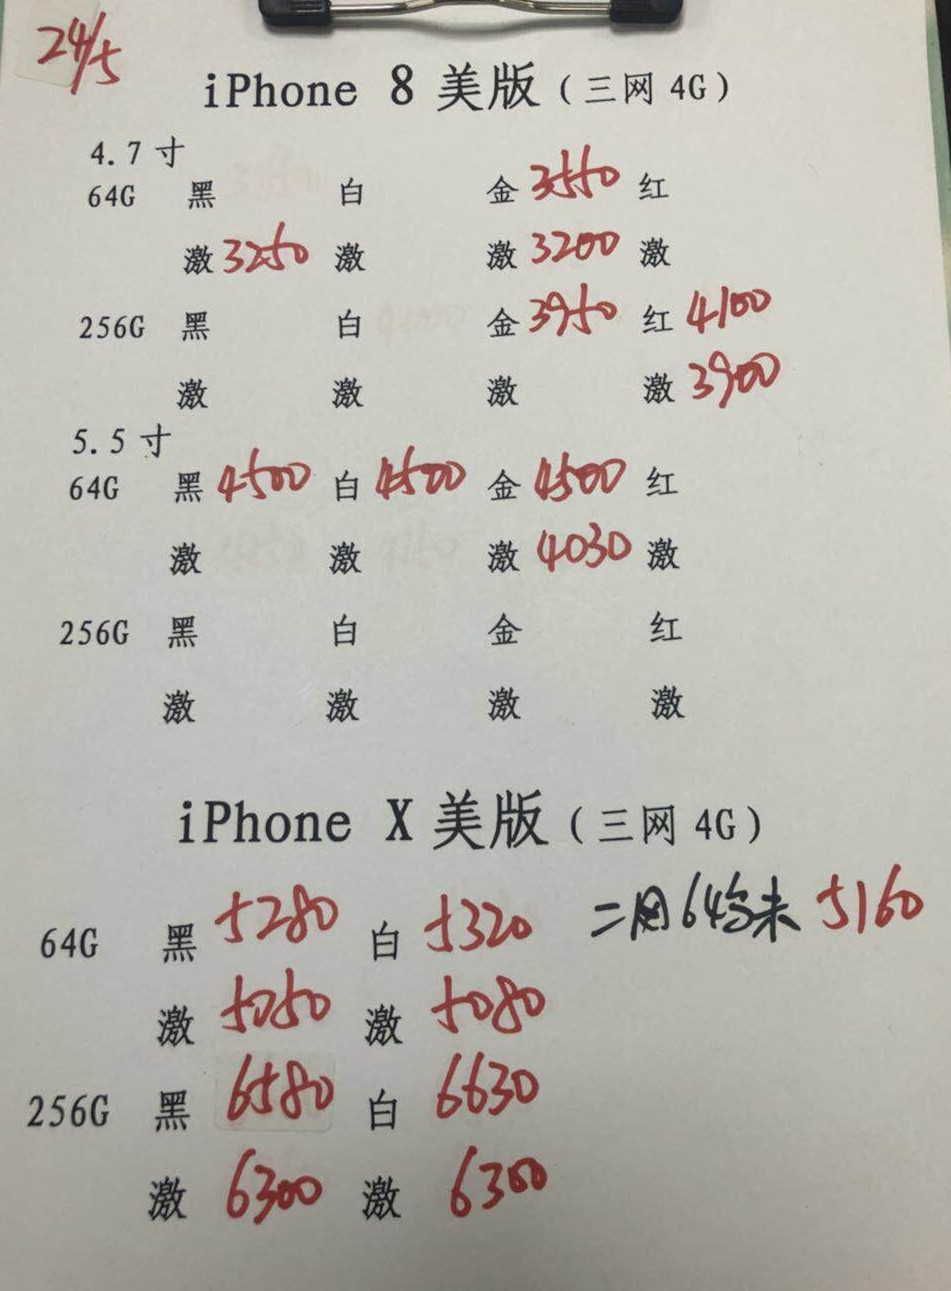 24/5
iPhone 8 美版（三网 4G）
4.7 寸
64G 黑 白 金 3550 红
激 3250 激 激 3200 激
256G 黑 白 金 3950 红 4100
激 激 激 激 3900
5.5 寸
64G 黑 4500 白 4500 金 4500 红
激 激 激 4030 激
256G 黑 白 金 红
激 激 激 激
iPhone X 美版（三网 4G）
64G 黑 5280 白 5320 二网 64 未 5160
激 5050 激 5080
256G 黑 6580 白 6630
激 6300 激 6300